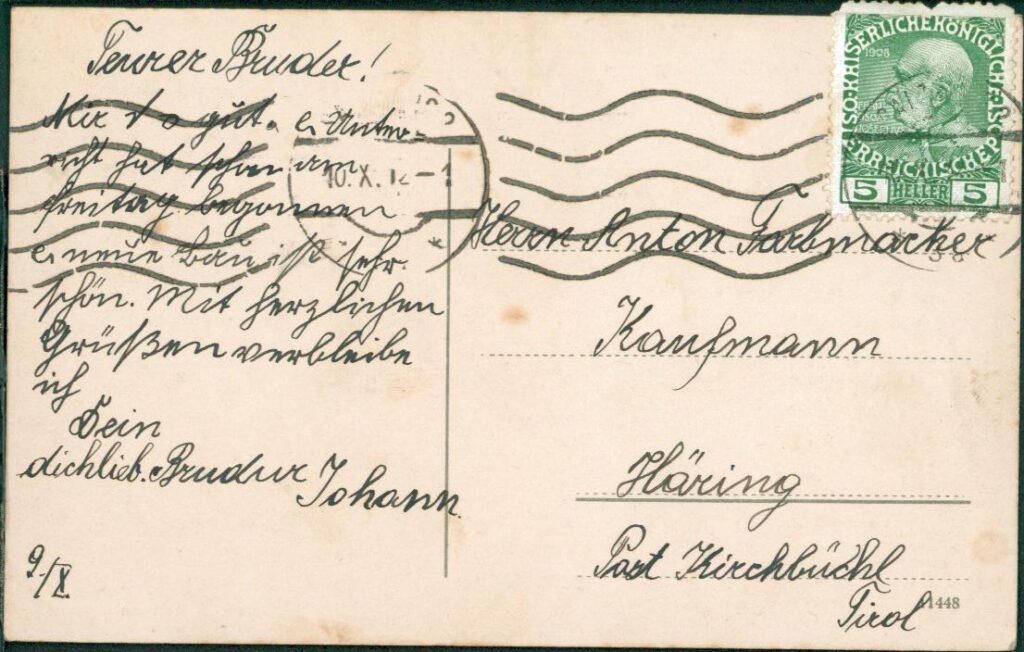 Teurer Bruder!
Mir gut. Unter-
richt hat schon am
Freitag begonnen
neue Bau ist sehr
schön. Mit herzlichen
Grüßen verbleibe
ich
Dein
dichlieb. Brudur Johann.
9/X.
10.X.12-1
*
KAISERLICHEKÖNIGLICHE
1908
ÖSTERREICHISCHEPOST
5 HELLER 5
Herrn Anton Farbmacher
Kaufmann
Häring
Post Kirchbüchl
Tirol
1448